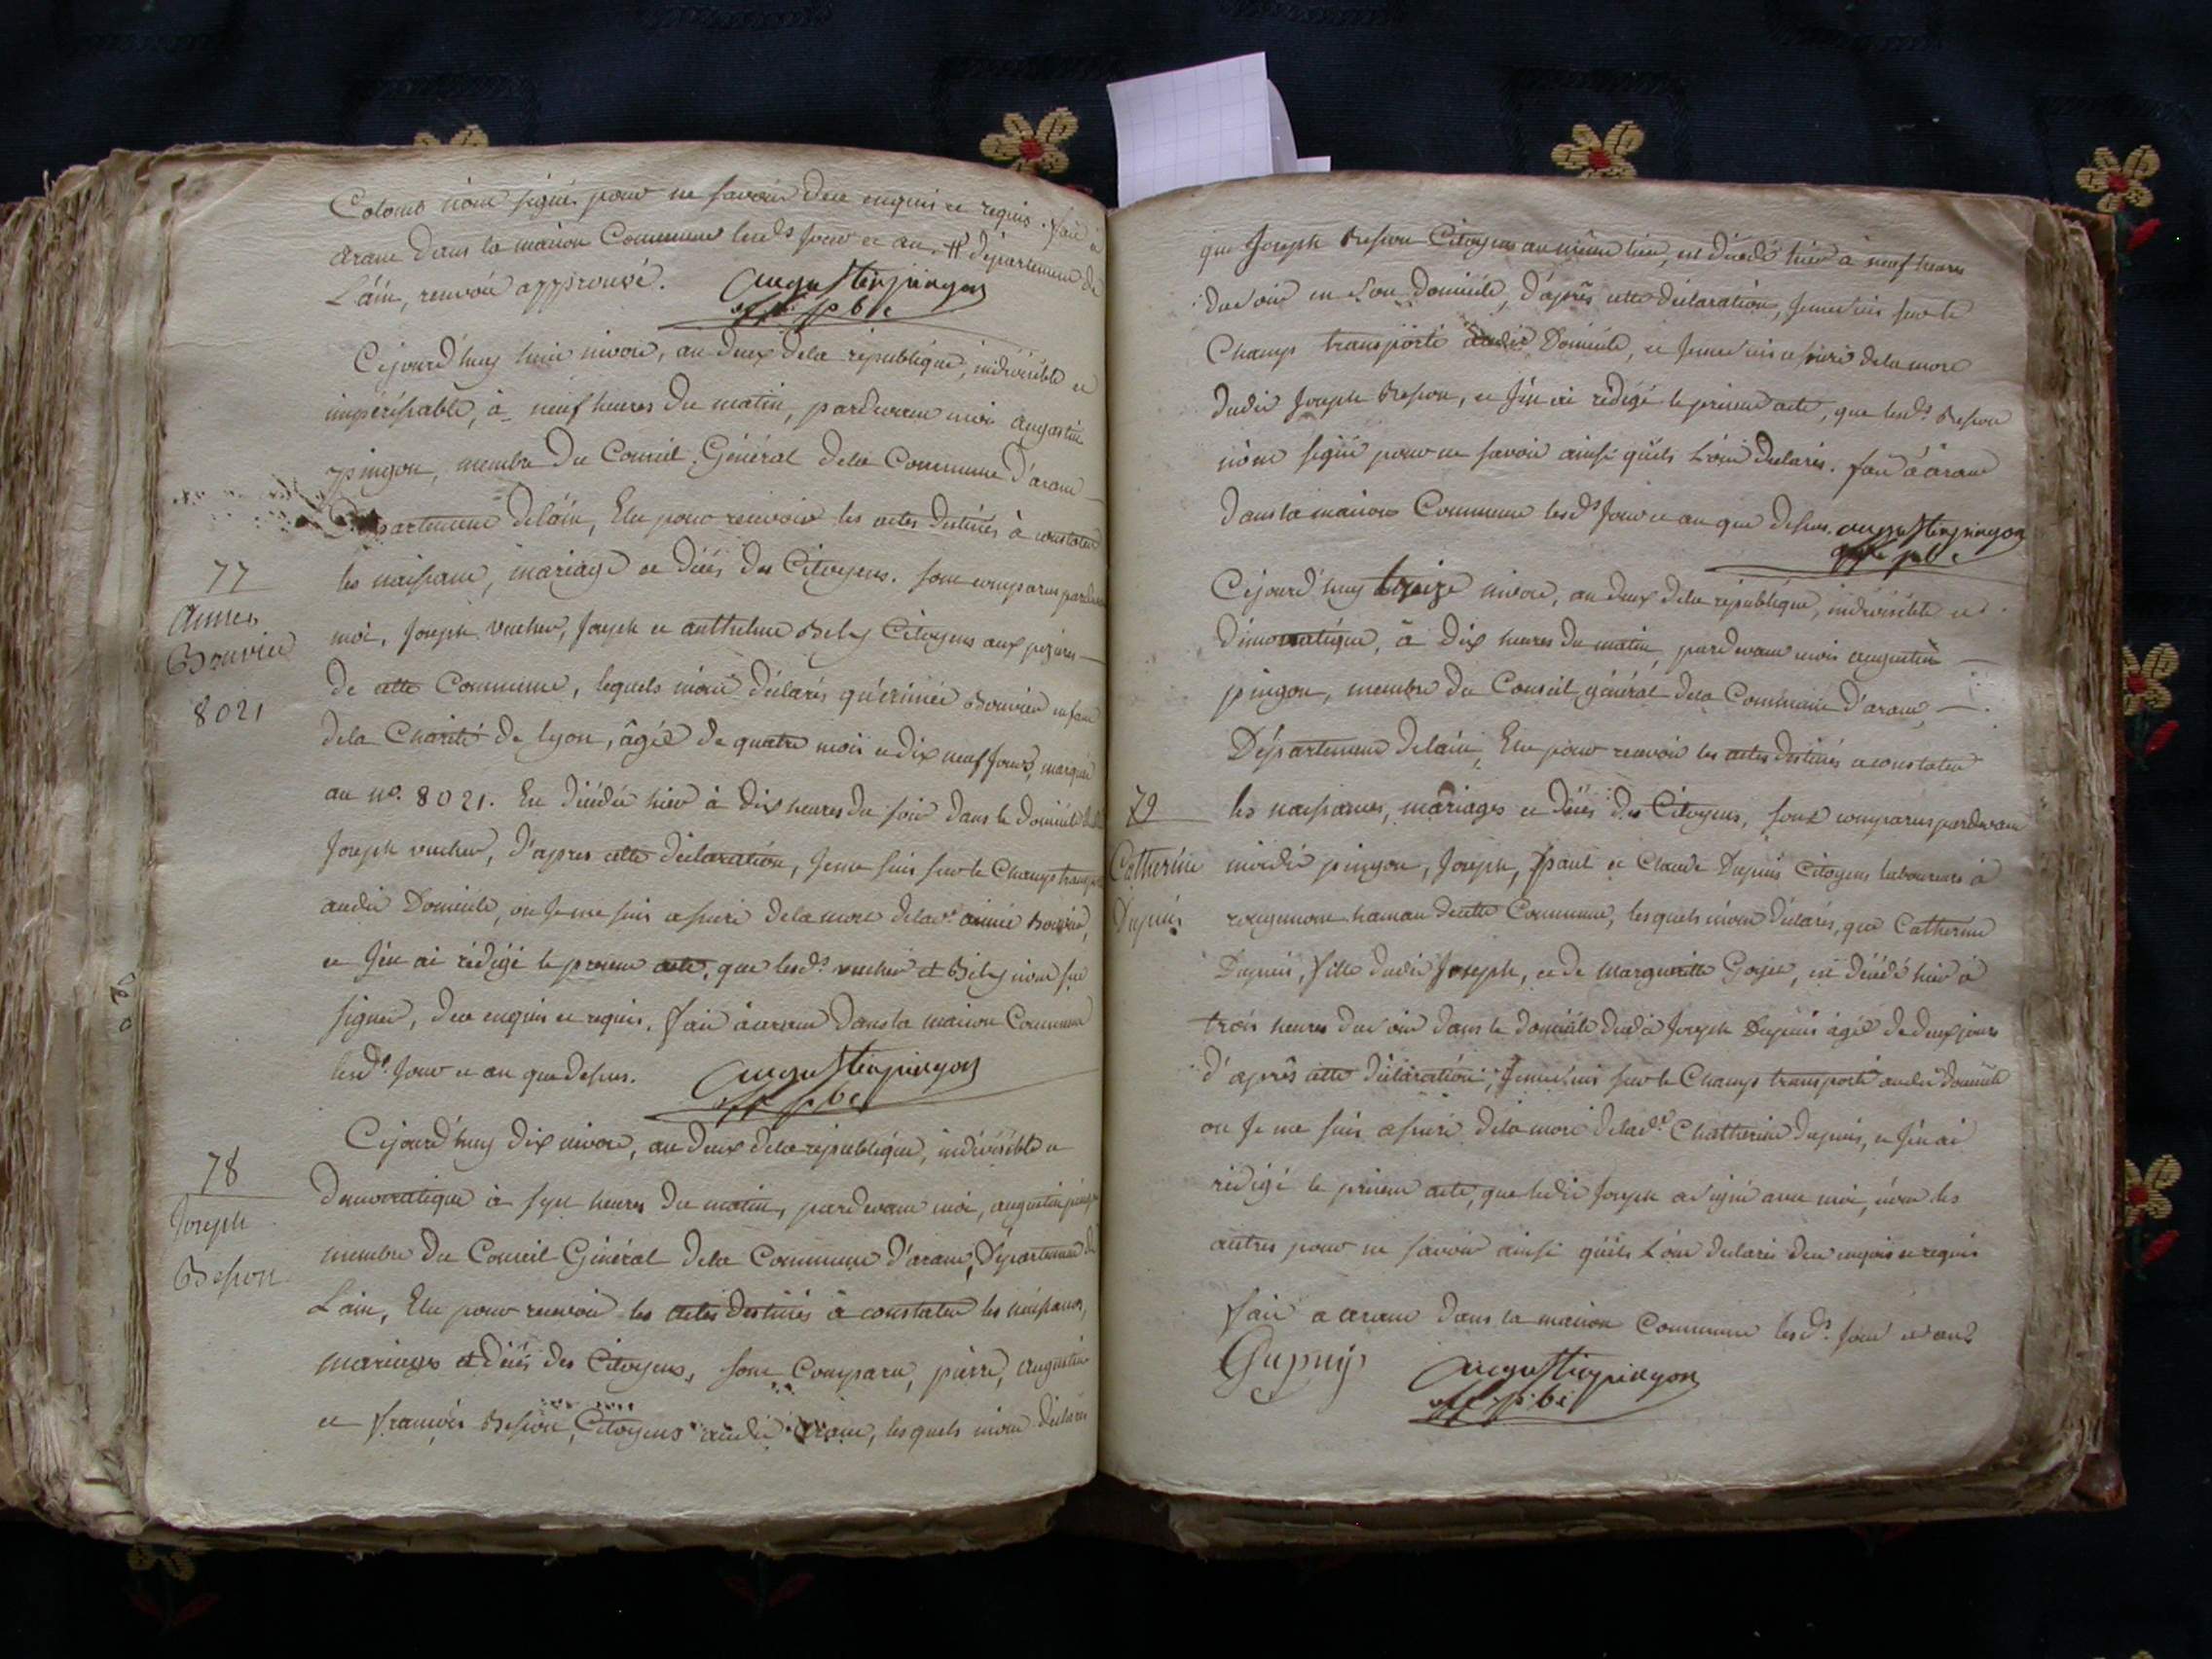 Colomb n'ont signé pour ne savoir de ce enquis et requis. fait à
arane dans la maison Commune lesd.s Jour et an. # département de
L'ain, renvoi approuvé. augustin pingon
off. pbc
Cejourd'huy huit nivose, an deux de la république, indivisible et
impérissable, à neuf heures du matin, pardevant moi augustin
pingon, membre du Conseil Général de la Commune d'arane
Département de l'ain, Elu pour recevoir les actes destinés à constater
77
les naissance, mariage et décès des Citoyens. sont comparus pardevant
Aimée
moi, Joseph vucher, Joseph et anthelme Bely Citoyens aux pézières
Bouvier
de cette Commune, lequels m'ont déclarés qu'aimée Bouvier enfant
8021
de la Charité de lyon, âgée de quatre mois et dix neuf Jours, marquée
au n.o 8021. Est décédée hier à dix heures du soir dans le domicile dudit
Joseph vucher, d'apres cette déclaration, Je me suis sur le Champ transporté
audit Domicile, ou Je me suis assuré de la mort de lad.e aimée Bouvier,
et J'en ai rédigé le présent acte, que lesd.s vucher et Bely n'ont sçu
signer, de ce enquis et requis. fait à arane dans la maison Commune
lesd.s Jour et an que dessus. augustin pingon
off. pbc
Cejourd'huy dix nivose, an deux de la république, indivisible et
78
démocratique à sept heures du matin, pardevant moi, augustin pingon
Joseph
membre du Conseil Général de la Commune d'arane, Département de
Besson
L'ain, Elu pour recevoir les actes destinés à constater les naissances,
mariages et décès des Citoyens, sont Comparu, pierre, augustin
et françois Besson, Citoyens audit arane, lesquels m'ont déclarés
que Joseph Besson Citoyen au même lieu, est décédé hier à neuf heures
du soir en son domicile, d'après cette déclaration, Je me suis sur le
Champ transporté audit Domicile, et Je me suis assuré de la mort
dudit Joseph Besson, et J'en ai rédigé le présent acte, que lesd.s Besson
n'ont signé pour ne savoir ainsi qu'ils L'ont déclarés. fait à arane
dans la maison Commune lesd.s Jour et an que dessus. augustin pingon
off. pbc
Cejourd'huy treize nivose, an deux de la république, indivisible et
démocratique, à dix heures du matin, pardevant moi augustin
pingon, membre du Conseil général de la Commune d'arane,
Département de l'ain, Elu pour recevoir les actes destinés a constater
79
les naissances, mariages et décès des Citoyens, sont comparus pardevant
Catherine
moidit pingon, Joseph, paul et Claude Dupuis Citoyens laboureurs à
Dupuis
rougemont hameau de cette Commune, lesquels m'ont déclarés, que Catherine
Dupuis, fille dudit Joseph, et de Marguerite Goyet, est décédé hier à
trois heures du soir dans le domicile dudit Joseph Dupuis âgée de deux jours
d'après cette déclaration, Je me suis sur le Champ transporté audit domicile
ou Je me suis assuré de la mort de lad.e Chatherine dupuis, et J'en ai
rédigé le présent acte, que ledit Joseph a signé avec moi, non les
autres pour ne savoir ainsi qu'ils L'ont declarés de ce enquis et requis
fait a arane dans la maison Commune lesd.s Jour et an
Dupuis augustin pingon
off. pbc